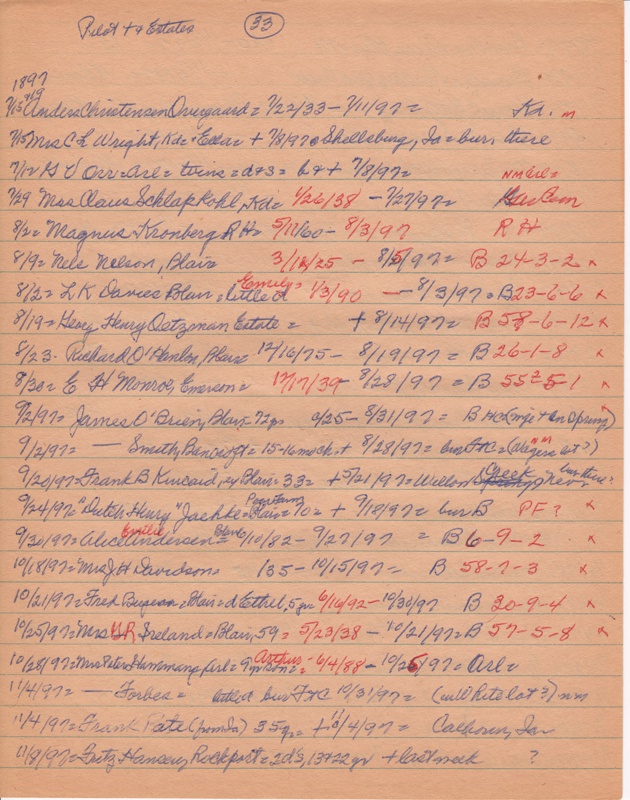 Pilot + & Estates 33
1897
7/15 Anders Christensen Overgaard = 7/22/33 - 7/11/97 = Kd. m
7/15 Mrs C L Wright, Kd = Edda = + 7/8/97 @ Shellsburg, Ia = bur. there
7/12 Orr = Arl = twins = d + s = b + + 7/8/97 = NM Arl =
7/29 Mrs Claus Schlapkohl, Kd = 1/26/38 - 7/27/97 =
8/2 = Magnus Kronberg R H = 5/11/60 - 8/3/97 R H
8/9 = Nels Nelson, Blair 3/12/25 - 8/5/97 = B 24-3-2 x
8/2 = L K Davies Blair = little d Emily = 1/3/90 - 8/3/97 = B 23-6-6 x
8/19 = Georg Henry Oetzman Estate = + 8/14/97 = B 58-6-12 x
8/23 - Richard O'Hanlon, Blair 12/16/75 - 8/19/97 = B 26-1-8 x
8/30 = E H Monroe, Emerson = 12/17/39 - 8/28/97 = B 55-5-1 x
9/2/97 = James O'Brien, Blair = 72 yrs /25 - 8/31/97 = B
9/2/97 = — Smith, Bancroft = 15-16 mo ch = + 8/28/97 = bur
9/20/97 = Frank B Kincaid, Blair = 33 = + 5/21/97 = Willow Creek
9/24/97 = "Dutch Henry" Jaehke = Blair = 70 = + 9/18/97 = bur B PF ? x
9/30/97 = Alice Emilie Andersen = 10/82 - 9/27/97 = B 6-9-2 x
10/18/97 = Mrs J H Davidson = 135 - 10/15/97 = B 58-7-3 x
10/21/97 = Fred = Blair = d Ethel, 5 yr 6/16/92 - 10/20/97 B 20-9-4 x
10/25/97 = Mrs HR Ireland = Blair, 59 = 5/23/38 - 10/21/97 = B 57-5-8 x
10/28/97 = Mrs Peter Hammang, Arl = 9 yr son = Arthur = 6/4/88 - 10/25/97 = Arl =
11/4/97 = — Forbes = bur 10/31/97 = (in White lot ?) nm
11/4/97 = Frank Pate (from Ia) 35 yrs = + 11/4/97 = Calhoun, Ia
11/8/97 = Fritz Hansen, Rockport = 2 d's, 13 + 22 yr + last week ?